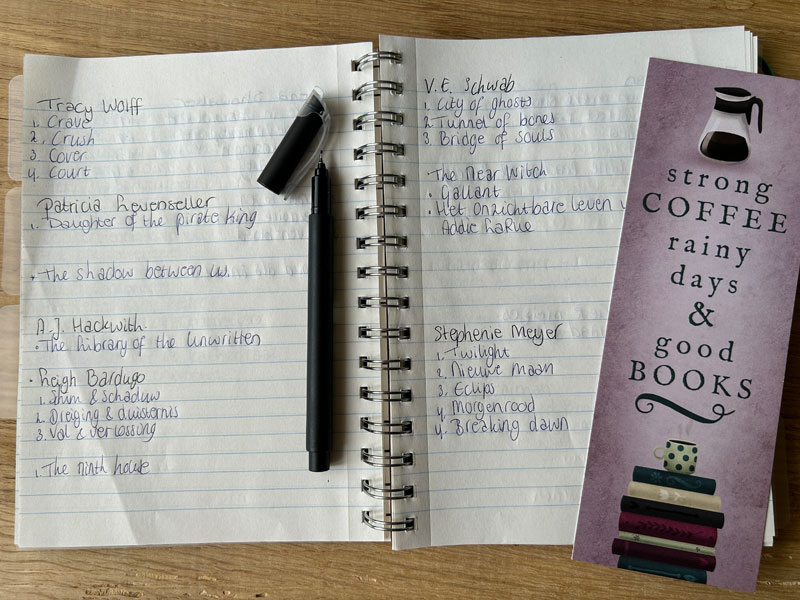 Tracy Wolff
1. Crave
2. Crush
3 Cover
4. Court
Patricia Levenseller
1. Daughter of the pirate king
• The shadow between us.
A.J. Hackwith
• The Library of the Unwritten
• Leigh Bardugo
1. Schim & schaduw
2. Dreiging & duisternis
3. Val & verlossing
1. The ninth house
V.E. Schwab
1. City of ghosts
2. Tunnel of bones
3. Bridge of souls
• The Near Witch
• Gallant
• Het onzichtbare leven
Addie LaRue
Stephenie Meyer
1. Twilight
2. Nieuwe maan
3. Eclips
4. Morgenrood
4. Breaking dawn
strong
COFFEE
rainy
days
&
good
BOOKS